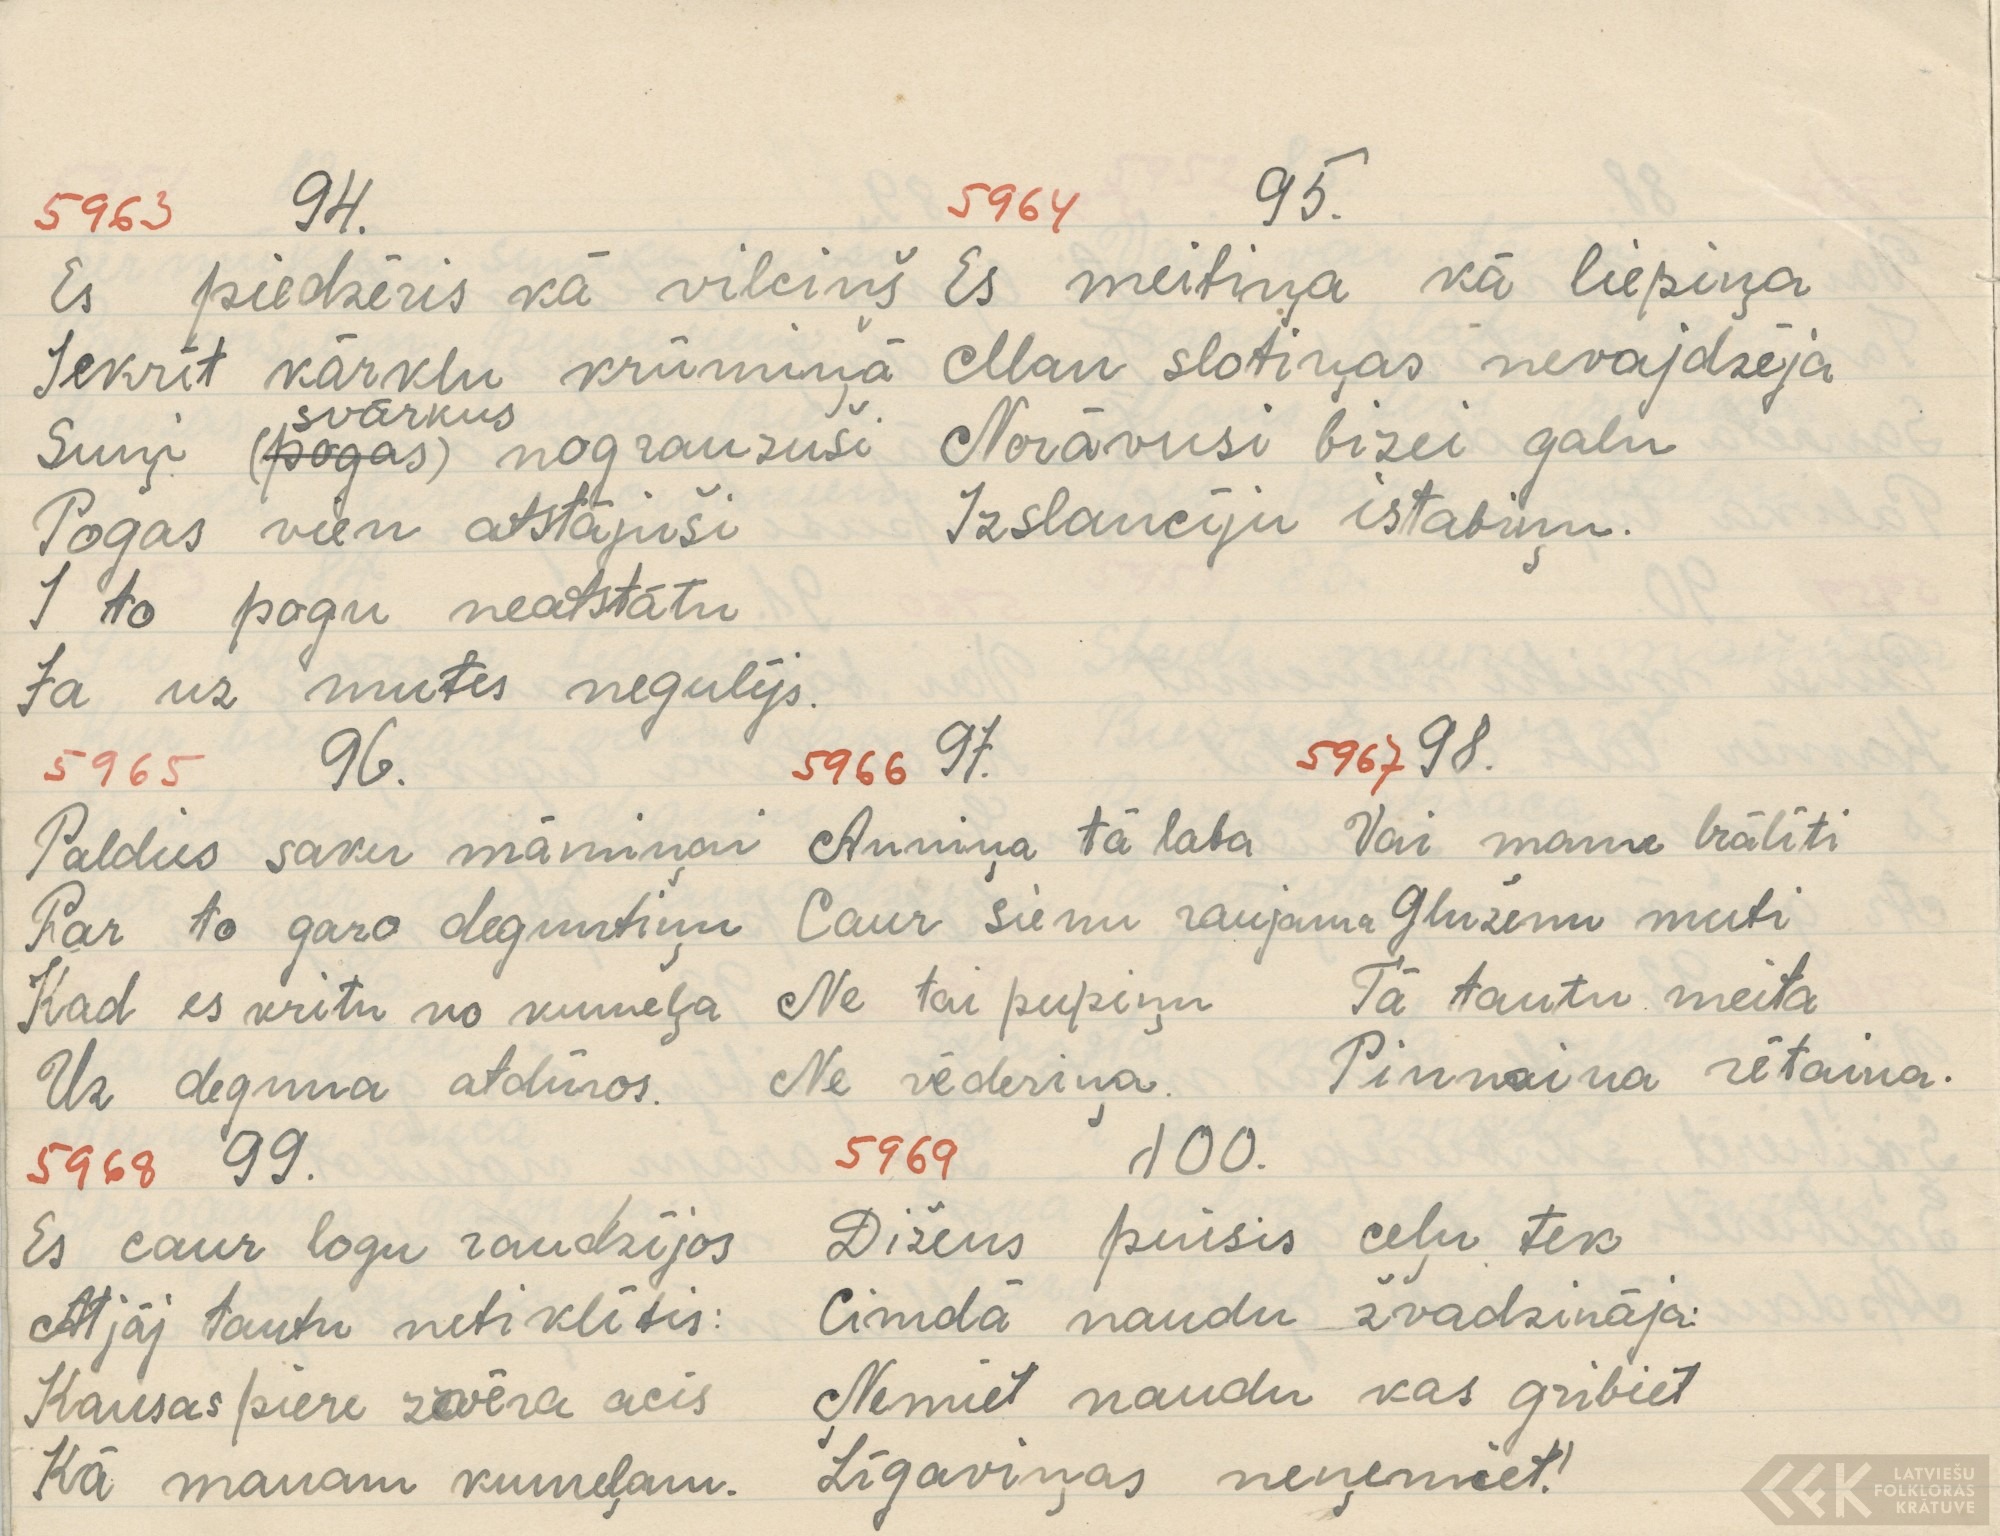 5963 94.
Es piedzēris kā vilciņš
Iekrīt kārklu krūmiņā
svārkus
Suņi (pogas) nograuzuši
Pogas vien atstājuši
I to pogu neatstātu
Ja uz mutes negulējs.
5964 95.
Es meitiņa kā liepiņa
Man slotiņas nevajdzēja
Norāvusi bizei galu
Izslaucīju istabiņu.
5965 96.
Paldies saku māmiņai
Par to garo deguntiņu
Kad es kritu no kumeļa
Uz deguna atdūros.
5966 97.
Anniņa tā laba
Caur sienu raujama
Ne tai pupiņu
Ne vēderiņa.
5967 98.
Vai manu brālīti
Gluženu muti
Tā tautu meita
Pinnaina rētaina.
5968 99.
Es caur logu raudzījos
Atjāj tautu netiklītis:
Kausas piere zvēra acis
Kā manam kumeļam.
5969 100.
Dižens puisis ceļu tek
Cimdā naudu žvadzināja:
Ņemiet naudu kas gribiet
Līgaviņas neņemiet!
LATVIEŠU
FOLKLORAS
KRĀTUVE